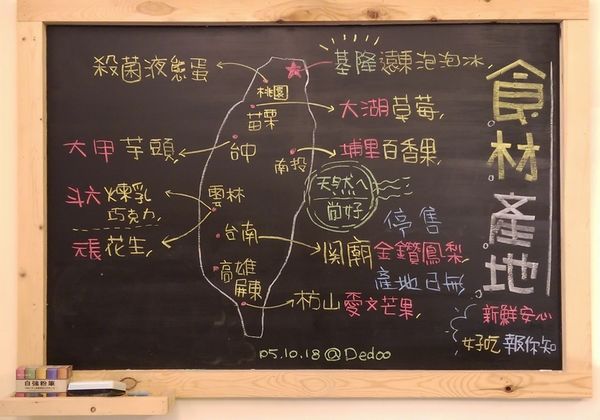 食材產地
殺菌液態蛋
桃園
基隆 泡泡冰
苗栗
大湖草莓
大甲芋頭
台中
南投
埔里百香果
天然ㄟ
尚好
斗六煉乳
巧克力
雲林
元長花生
停售
台南
関廟金鑽鳳梨
產地已無
高雄
屏東
枋山愛文芒果
新鮮安心
好吃報你知
05.10.18@Dedoo
自強粉筆